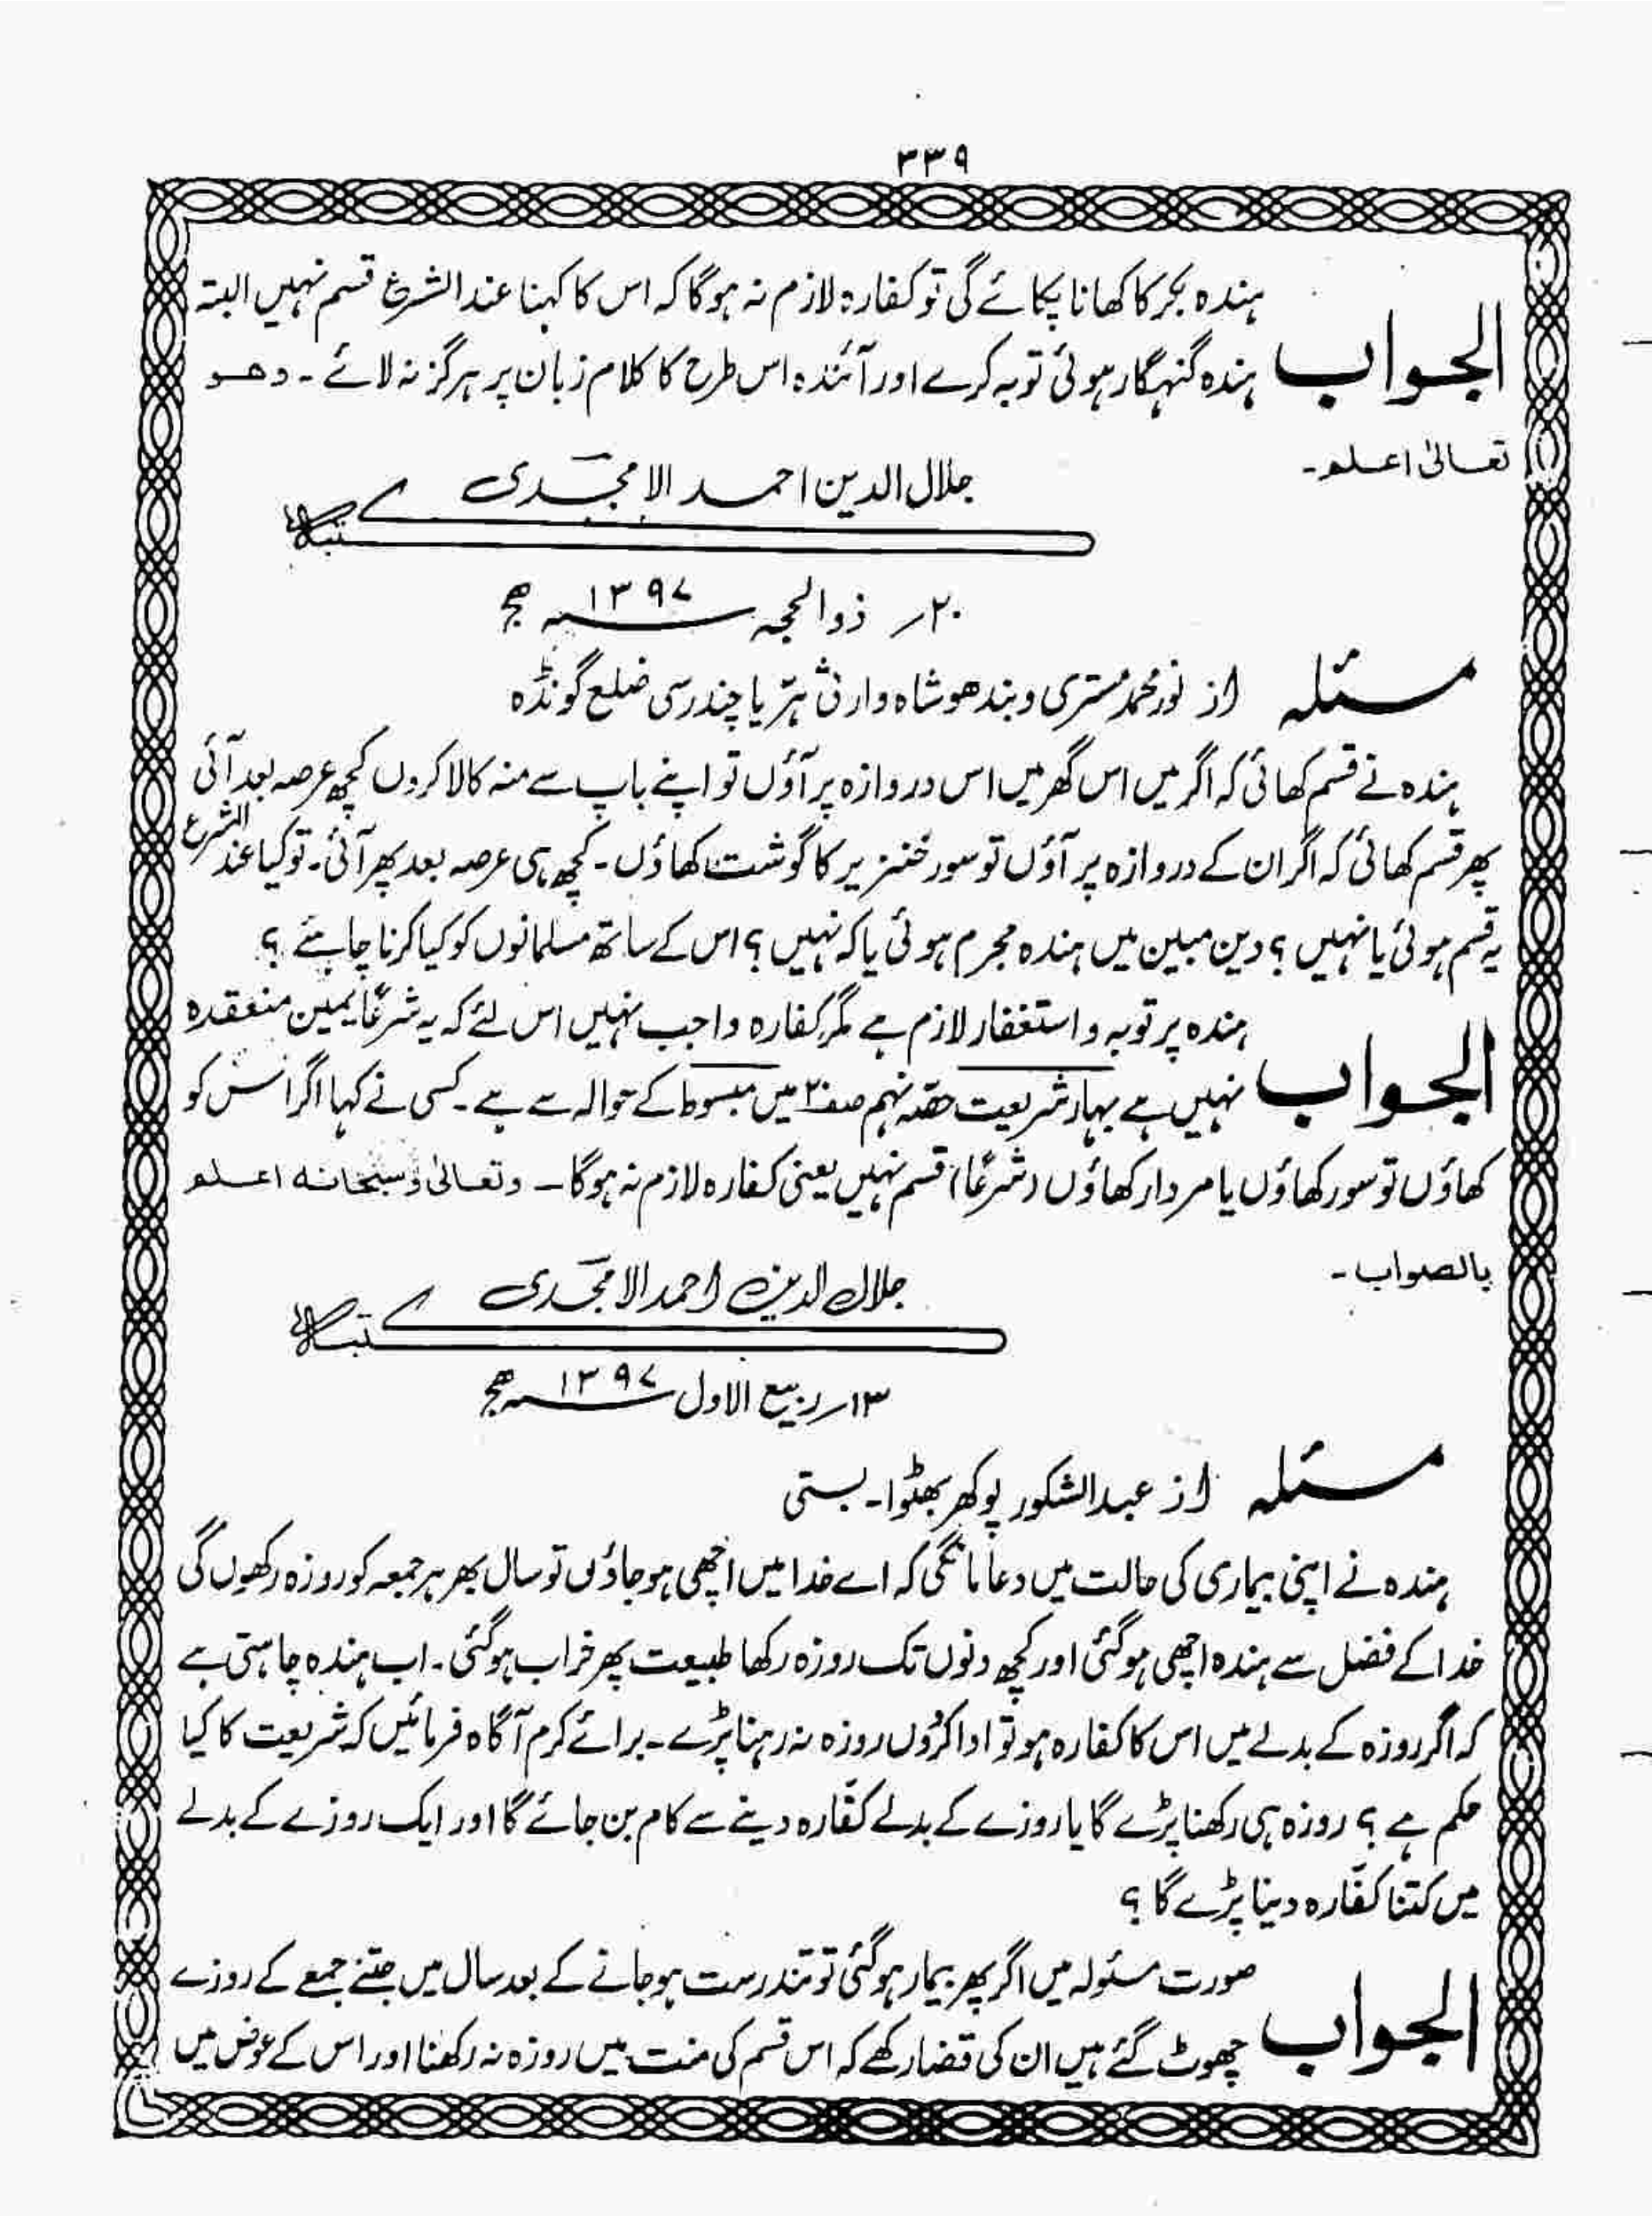 ۳۳۹
ہندہ بکر کا کھانا پکائے گی تو کفارہ لازم نہ ہوگا کہ اس کا کہنا عند الشرع قسم نہیں البتہ
الجواب ہندہ گنہگار ہوئی توبہ کرے اور آئندہ اس طرح کا کلام زبان پر ہرگز نہ لائے۔ وھو
تعالیٰ اعلم۔
جلال الدین احمد الامجدی
کتبہ
۲۰؍ ذوالحجہ ۱۳۹۷ ھج
مسئلہ از نور محمد مستری و بندھو شاہ وارثی ہتر یا چندرسی ضلع گونڈہ
ہندہ نے قسم کھائی کہ اگر میں اس گھر میں اس دروازہ پر آؤں تو اپنے باپ سے منہ کالا کروں کچھ عرصہ بعد آئی
پھر قسم کھائی کہ اگر ان کے دروازہ پر آؤں تو سور خنزیر کا گوشت کھاؤں۔ کچھ ہی عرصہ بعد پھر آئی۔ تو کیا عند الشرع
یہ قسم ہوئی یا نہیں؟ دین مبین میں ہندہ مجرم ہوئی یا کہ نہیں؟ اس کے ساتھ مسلمانوں کو کیا کرنا چاہئے؟
ہندہ پر توبہ و استغفار لازم ہے مگر کفارہ واجب نہیں اس لئے کہ یہ شرعًا یمین منعقدہ
الجواب نہیں ہے بہار شریعت حصّہ نہم صفحہ ۲۰ میں مبسوط کے حوالہ سے ہے۔ کسی نے کہا اگر اس کو
کھاؤں تو سور کھاؤں یا مردار کھاؤں (شرعًا) قسم نہیں یعنی کفارہ لازم نہ ہوگا۔ وتعالیٰ وسبحانہ اعلم
بالصواب۔
جلال الدین احمد الامجدی
کتبہ
۱۳؍ ربیع الاول ۱۳۹۷ ھج
مسئلہ از عبد الشکور پوکھر بھٹوا۔ بستی
ہندہ نے اپنی بیماری کی حالت میں دعا مانگی کہ اے خدا میں اچھی ہو جاؤں تو سال بھر ہر جمعہ کو روزہ رکھوں گی
خدا کے فضل سے ہندہ اچھی ہو گئی اور کچھ دنوں تک روزہ رکھا طبیعت پھر خراب ہو گئی۔ اب ہندہ چاہتی ہے
کہ اگر روزہ کے بدلے میں اس کا کفارہ ہو تو ادا کروں روزہ نہ رہنا پڑے۔ برائے کرم آگاہ فرمائیں کہ شریعت کا کیا
حکم ہے؟ روزہ ہی رکھنا پڑے گا یا روزے کے بدلے کفّارہ دینے سے کام بن جائے گا اور ایک روزے کے بدلے
میں کتنا کفّارہ دینا پڑے گا؟
صورت مسئولہ میں اگر پھر بیمار ہو گئی تو تندرست ہو جانے کے بعد سال میں جتنے جمعے کے روزے
الجواب چھوٹ گئے ہیں ان کی قضا رکھے کہ اس قسم کی منت میں روزہ نہ رکھنا اور اس کے عوض میں